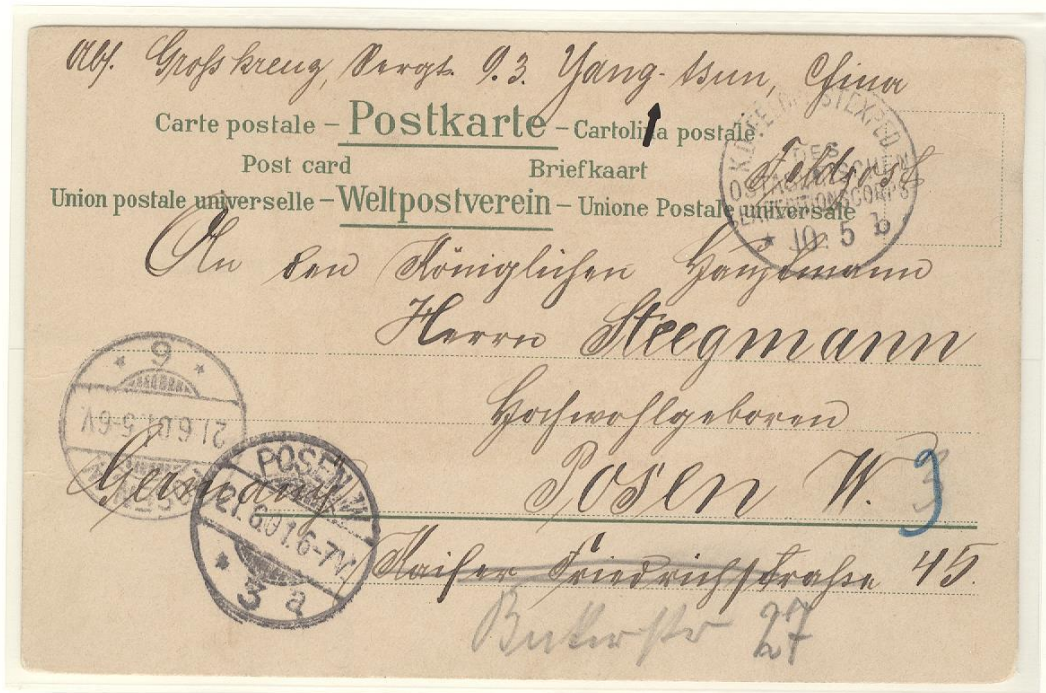 Abs. Grosskreuz, Sergt. 9.3. Yang-tsun, China
Carte postale – Postkarte – Cartolina postale
Post card Briefkaart
Union postale universelle – Weltpostverein – Unione Postale universale
Feldpost
K.D. FELDPOSTEXPED.
DES
OSTASIATISCHEN
EXPEDITIONSCORPS
* 10. 5 b
An den Königlichen Hauptmann
Herrn Steegmann
Hochwohlgeboren
Posen W. 3
9
Germany
Kaiser Friedrichstraße 45.
27
* 9 *
21.6.01.5-6V.
POSEN
POSEN
21.6.01.6-7V.
* 3 a